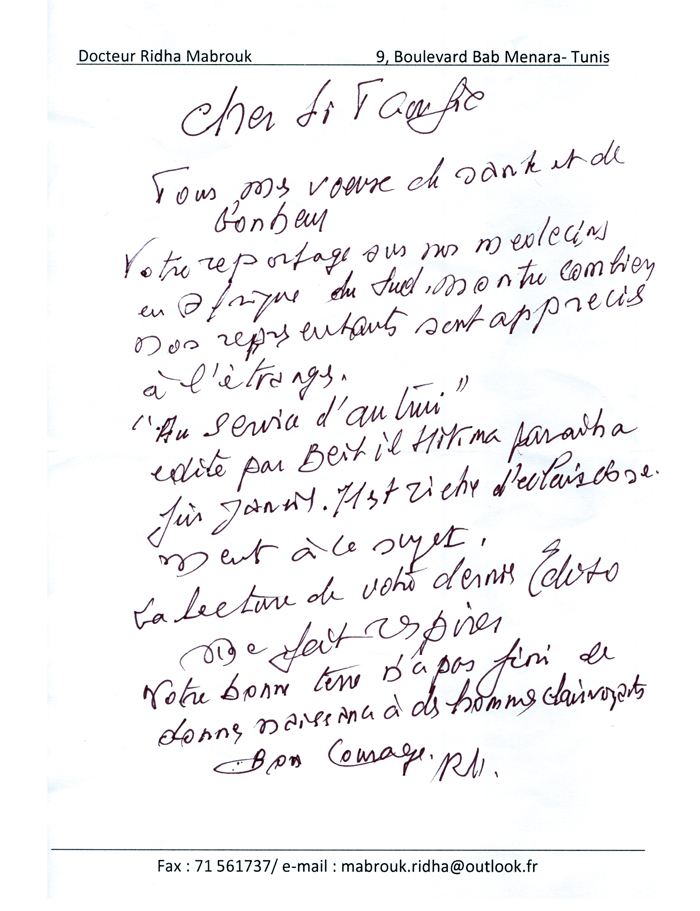 Docteur Ridha Mabrouk 9, Boulevard Bab Menara- Tunis
Cher Si Taoufic
Tous mes voeux de santé et de
bonheur
Votre reportage sur nos medecins
en Afrique du Sud, montre combien
nos représentants sont appreciés
à l'étrangs.
"Au Service d'autrui"
edité par Beit il Hikma paraitra
fin Janvis. Il est riche d'eclaircisse-
ment à ce sujet.
La lecture de votre dernis Edito
Me fait respirer
Votre bonne terre n'a pas fini de
donner naissance à des hommes clairvoyants
Bon Courage. RM.
Fax : 71 561737/ e-mail : mabrouk.ridha@outlook.fr